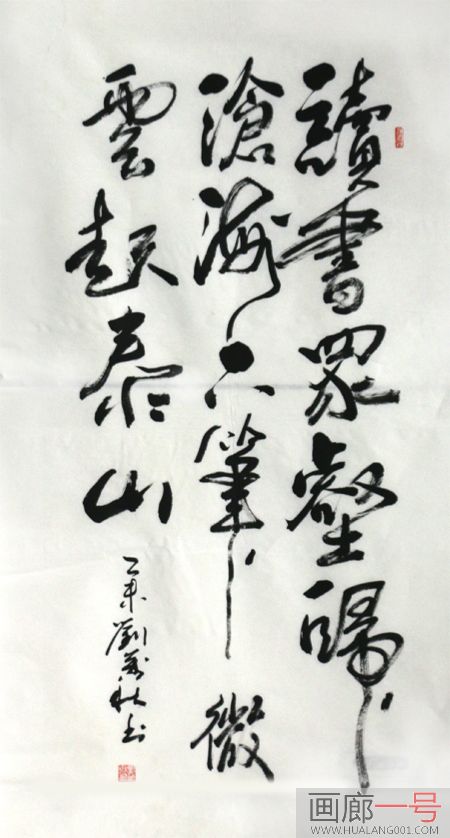 讀書眾壑歸
滄海下筆微
雲起泰山
乙未劉
画廊一号
WWW.HUALANG001.COM